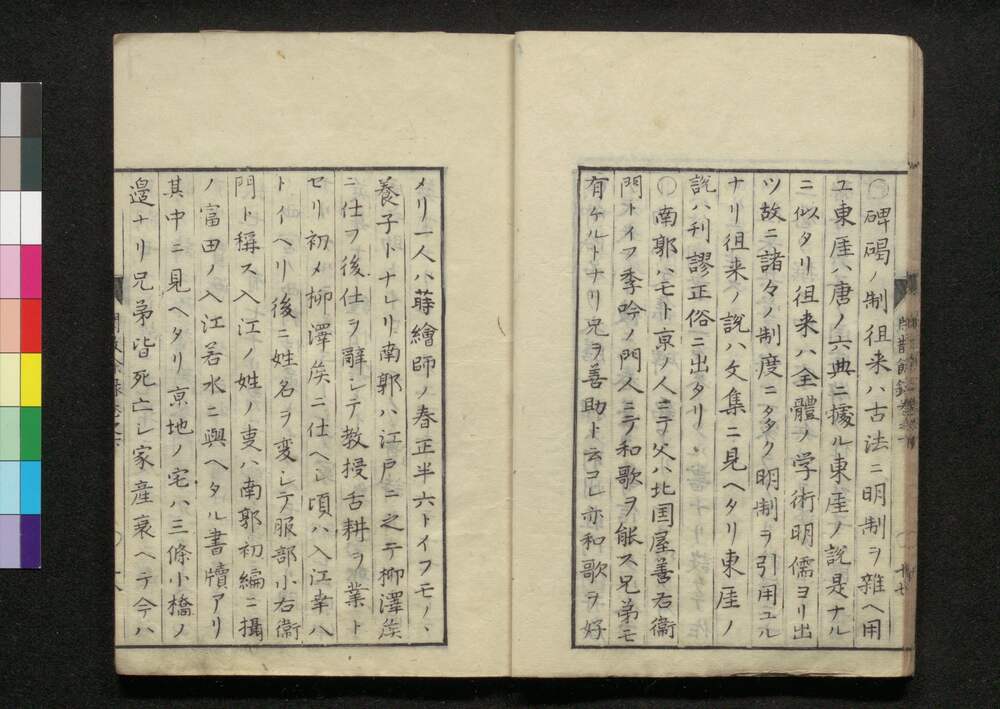 〇碑碣ノ制徂来ハ古法ニ明制ヲ雜ヘ用
ユ東厓ハ唐ノ六典ニ據ル東厓ノ説是ナル
ニ似タリ徂来ハ全體ノ学術明儒ヨリ出
ツ故ニ諸々ノ制度ニタ多ク明制ヲ引用ユル
ナリ徂来ノ説ハ文集ニ見ヘタリ東厓ノ
説ハ刋謬正俗ニ出タリ
〇南郭ハモト京ノ人ニテ父ハ北国屋善右衞
門トイフ季吟ノ門人ニテ和歌ヲ能ス兄弟モ
有ケルトナリ兄ヲ善助ト云コレ亦和歌ヲ好
メリ一人ハ蒔繪師ノ春正半六トイフモノヽ
養子トナレリ南郭ハ江戸ニ之テ柳澤矦
ニ仕フ後仕ヲ辭シテ教授舌耕ヲ業ト
セリ初メ柳澤矦ニ仕ヘシ頃ハ入江幸八
トイヘリ後ニ姓名ヲ変シテ服部小右衞
門ト稱ス入江ノ姓ノ叓ハ南郭初編ニ攝
ノ富田ノ入江若水ニ與ヘタル書牘アリ
其中ニ見ヘタリ京地ノ宅ハ三條小橋ノ
邉ナリ兄弟皆死亡シ家産衰ヘテ今ハ